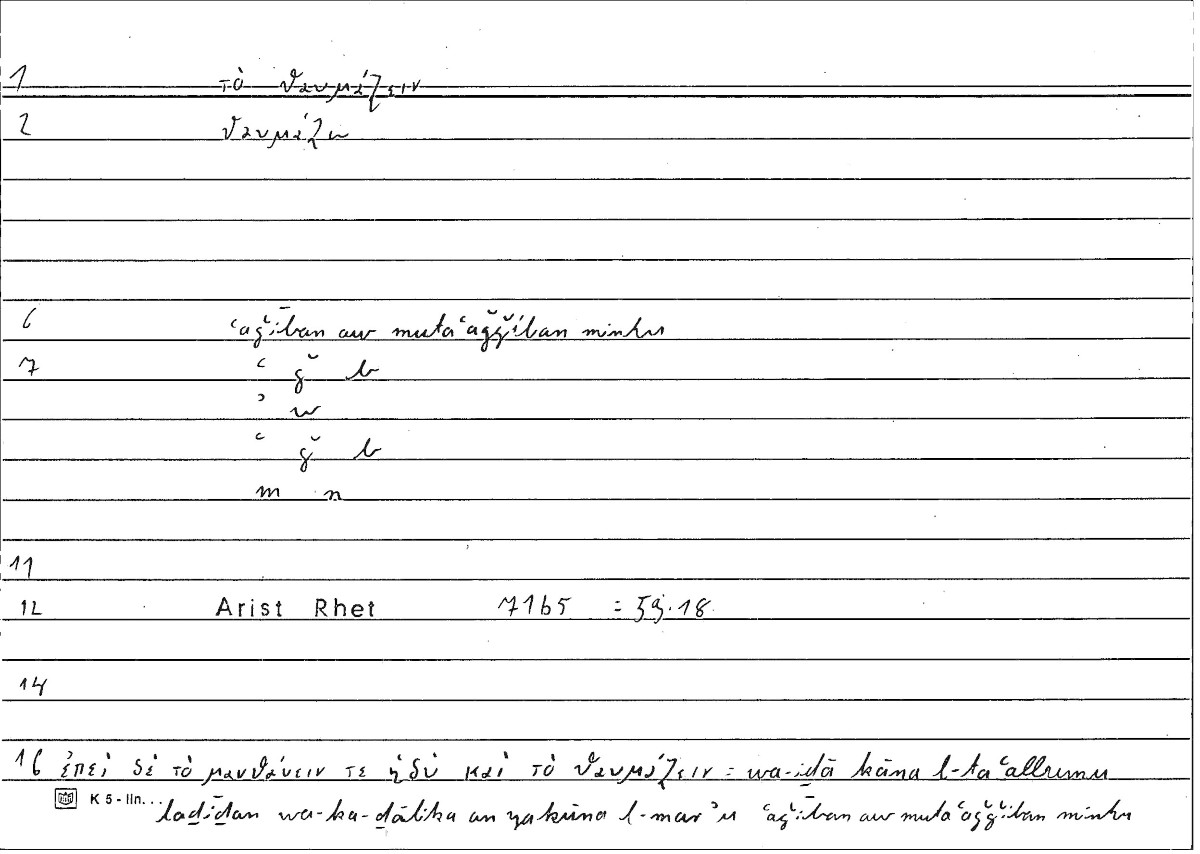 1 τὸ θαυμάζειν
2 θαυμάζω
6 ʿaǧīban aw mutaʿaǧǧiban minhu
7 ʿ ǧ b
ʾ w
ʿ ǧ b
m n
11
12 Arist Rhet 71b5 = 59.18
14
16 ἐπεὶ δὲ τὸ μανθάνειν τε ἡδὺ καὶ τὸ θαυμάζειν = wa-iḏā kāna l-taʿallumu
K 5 - lin... laḏīḏan wa-ka-ḏālika an yakūna l-marʾu ʿaǧīban aw mutaʿaǧǧiban minhu